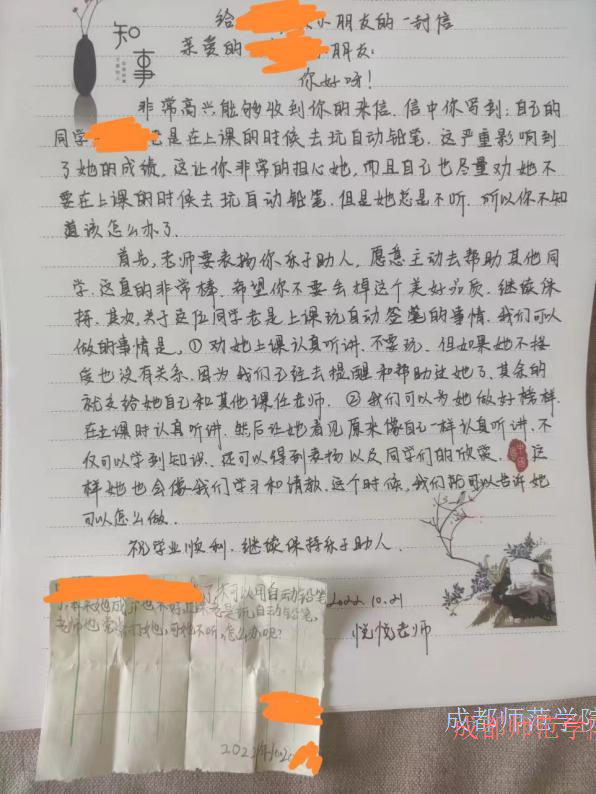 给 小朋友的一封信
知事
亲爱的 小朋友:
你好呀!
非常高兴能够收到你的来信.信中你写到:自己的
同学 老是在上课的时候去玩自动铅笔.这严重影响到
了她的成绩.这让你非常的担心她,而且自己也尽量劝她不
要在上课的时候去玩自动铅笔.但是她总是不听.所以你不知
道该怎么办了.
首先,老师要表扬你乐于助人,愿意主动去帮助其他同
学.这真的非常棒.希望你不要丢掉这个美好品质.继续保
持.其次,关于这位同学老是上课玩自动铅笔的事情.我们可以
做的事情是,①劝她上课认真听讲.不要玩.但如果她不接
受也没有关系.因为我们已经去提醒和帮助过她了.其余的
就交给她自己和其他课任老师.②我们可以为她做好榜样.
在上课时认真听讲.然后让她看见原来像自己一样认真听讲.不
仅可以学到知识.还可以得到表扬以及同学们的欣赏.这
样她也会像我们学习和请教.这个时候,我们就可以告诉她
可以怎么做.
祝学业顺利.继续保持乐于助人.
2022.10.21
悦悦老师
可以用自动铅笔
她成 也不好, 老是玩自动铅笔,
老师也常常 她,可她不听,怎么办呢?
2022年10.20
成都师范学院
成都师范学院